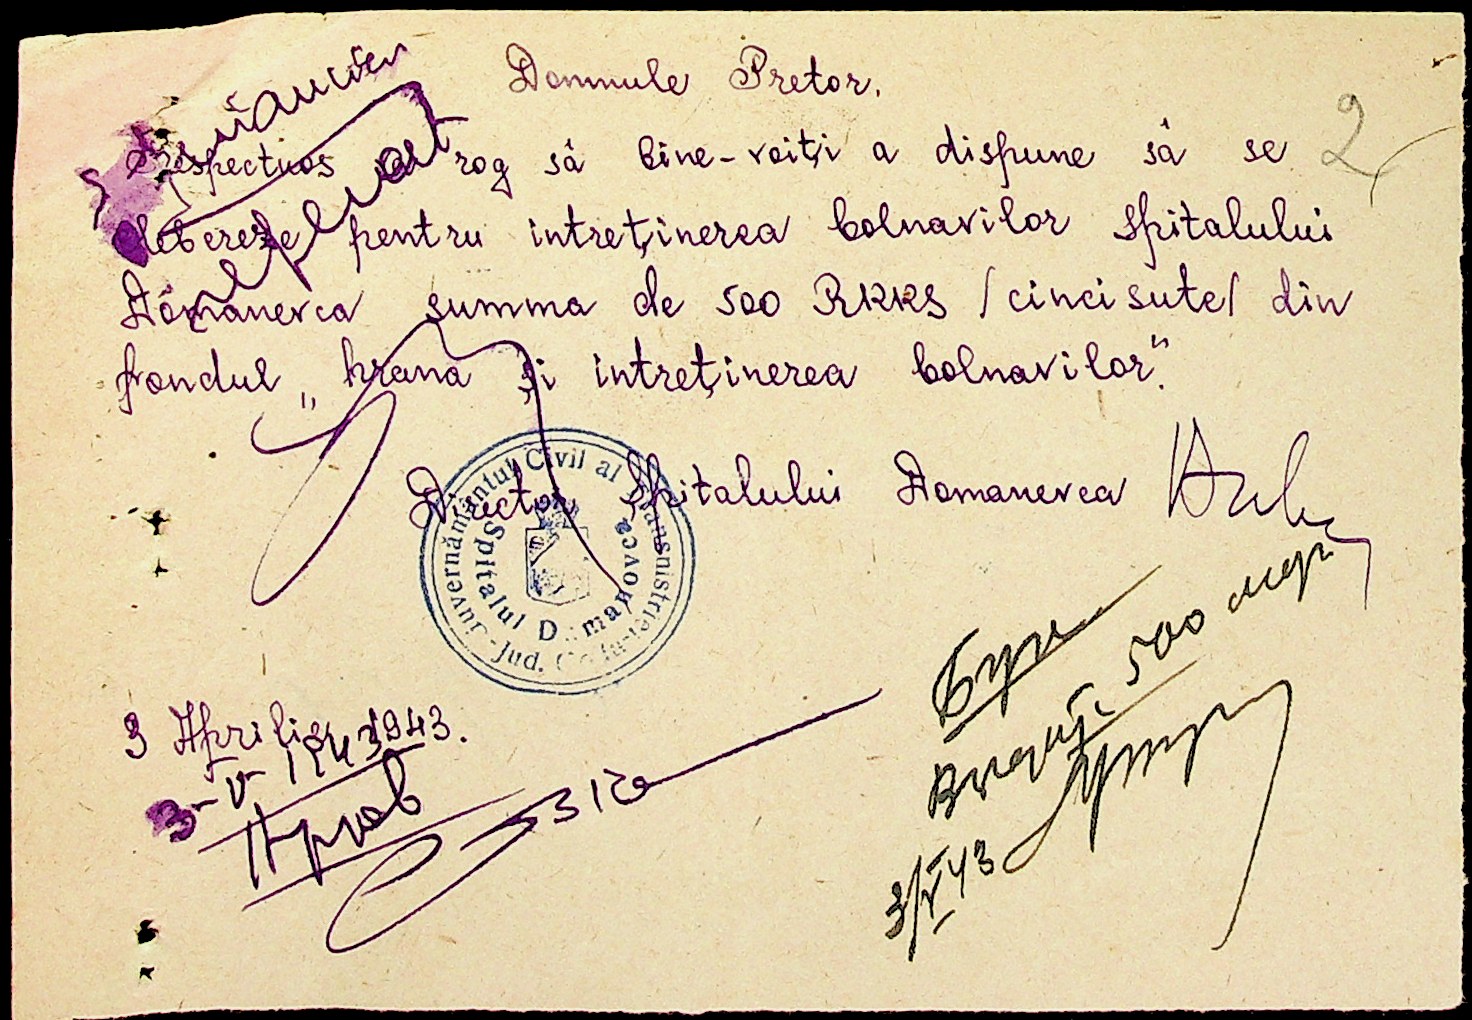 Domnule Pretor.
2
Respectuos vă rog să bine-voiți a dispune să se
elibereze pentru intreținerea bolnavilor Spitalului
Domanevca summa de 500 RKKS /cinci sute/ din
fondul „hrana și intreținerea bolnavilor".
Director Spitalului Domanevca
Guvernământul Civil al Transnistriei
Jud.
Spitalul Domanovca
3 Aprilie 1943.
3-V-1943
500
3/V 43